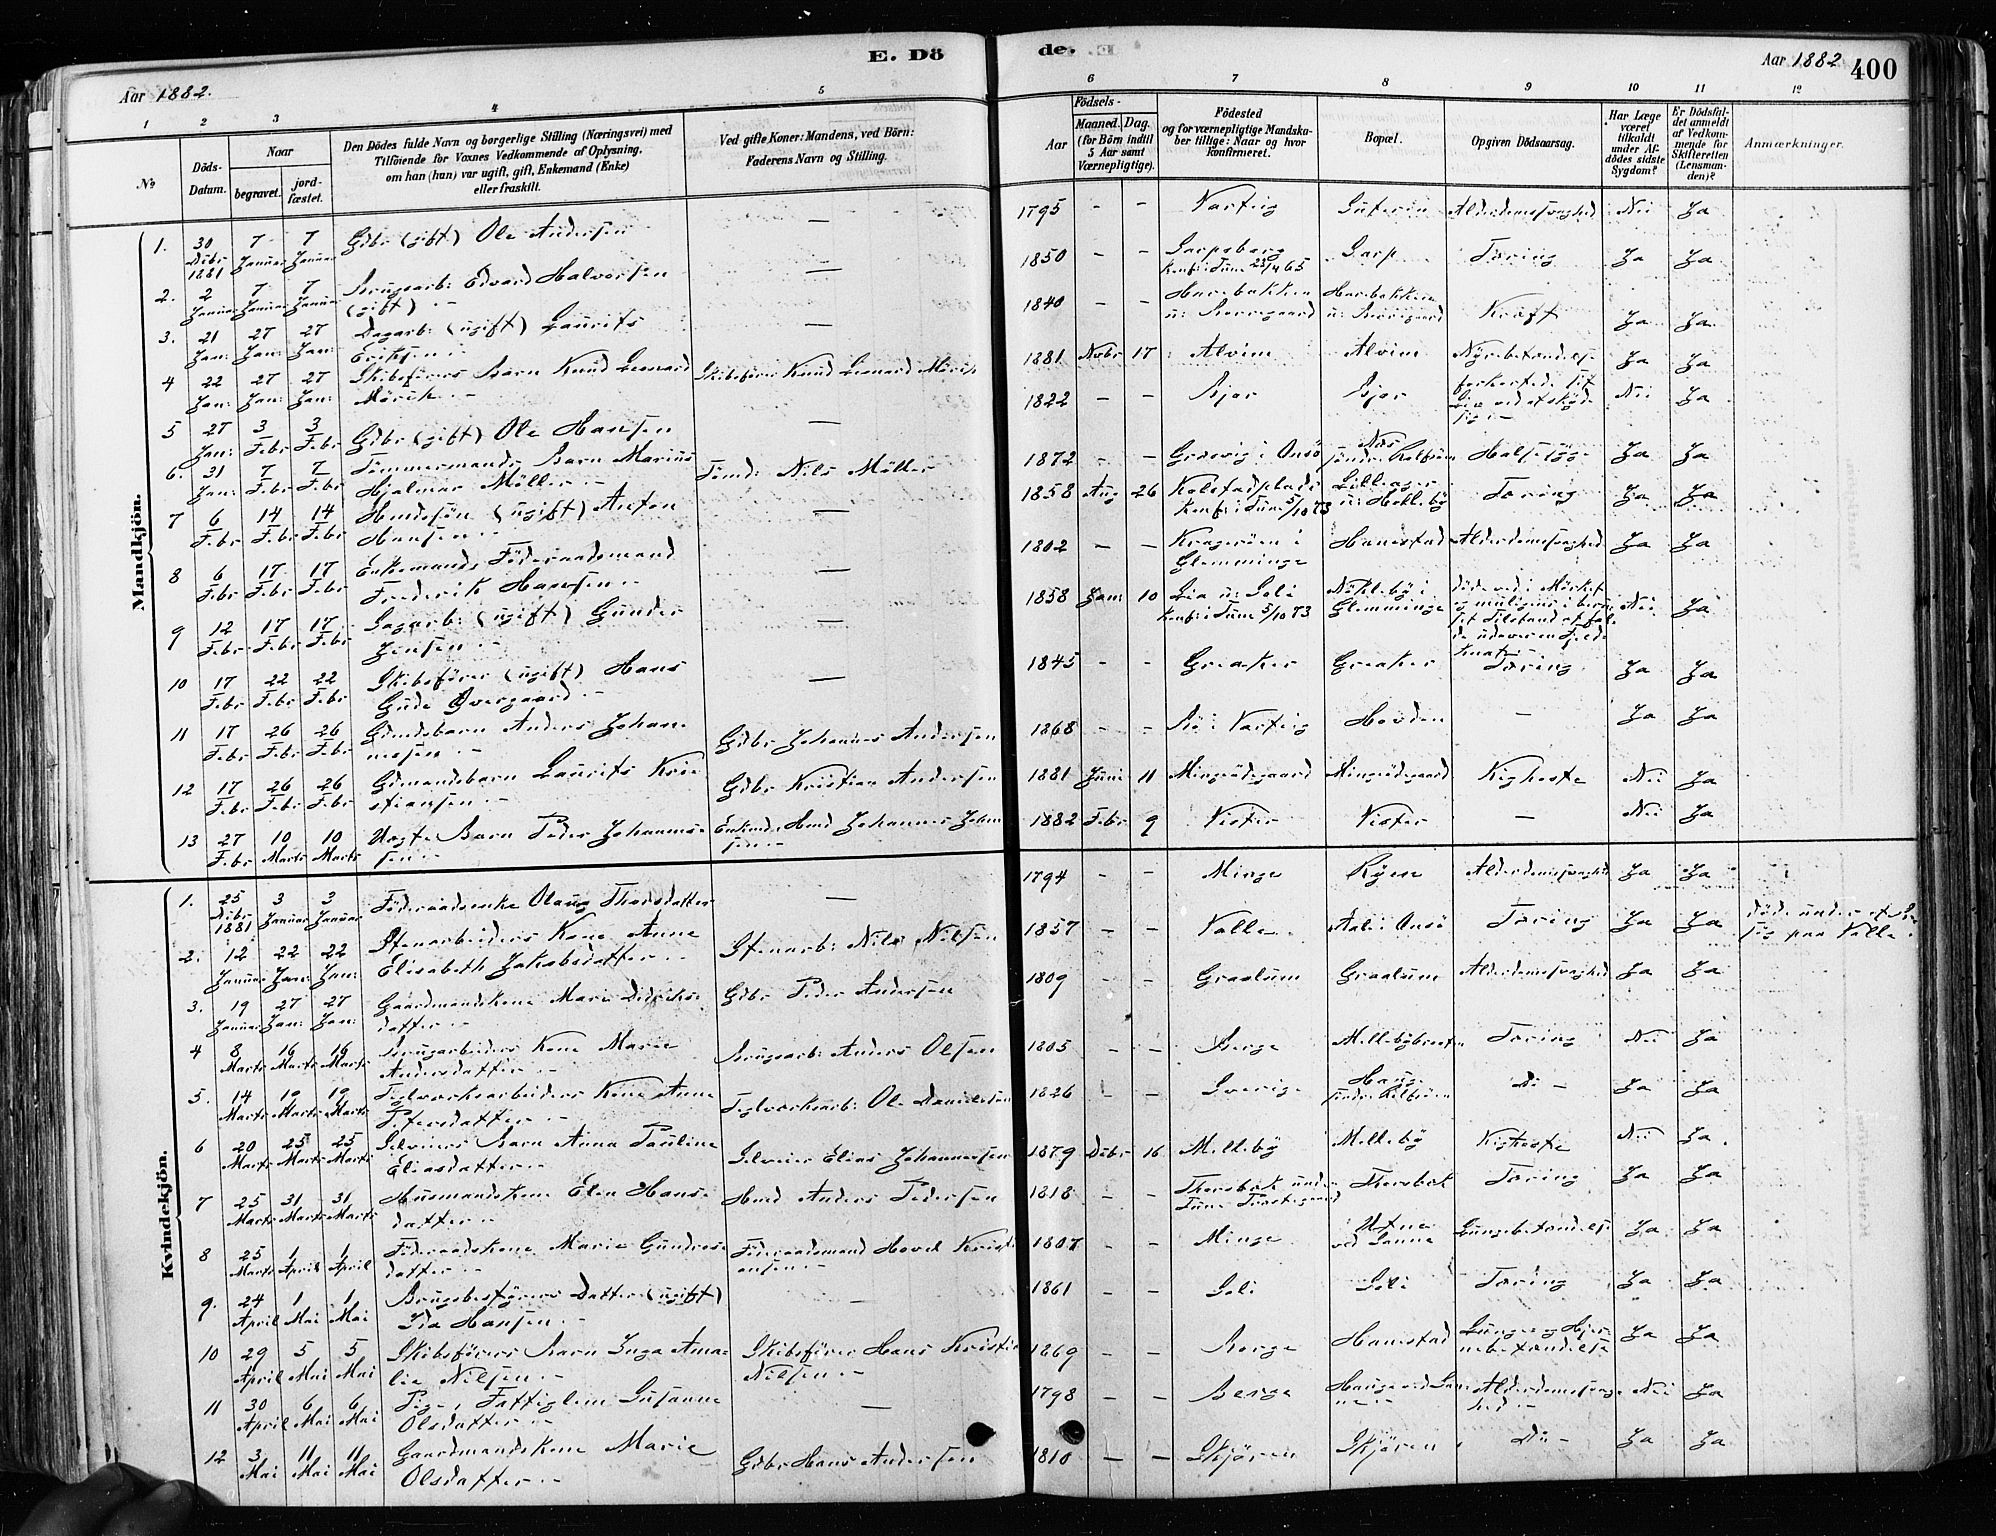 E. Dö
de.
Aar 1882.
Aar 1882
400
1 2 3 4 5
6 7 8 9 10 11 12
No
Döds-
Datum.
Naar
begravet.
jord-
fæstet.
Den Dödes fulde Navn og borgerlige Stilling (Næringsvei) med
Tilföiende for Voxnes Vedkommende af Oplysning,
om han (hun) var ugift, gift, Enkemand (Enke)
eller fraskilt.
Ved gifte Koner: Mandens, ved Börn:
Faderens Navn og Stilling.
Födsels-
Aar
Maaned. Dag.
(for Börn indtil
5 Aar samt
Værnepligtige).
Födested
og for værnepligtige Mandska-
ber tillige: Naar og hvor
konfirmeret.
Bopæl.
Opgiven Dödsaarsag.
Har Læge
været
tilkaldt
under Af-
dödes sidste
Sygdom?
Er Dödsfal-
det anmeldt
af Vedkom-
mende for
Skifteretten
(Lensman-
den)?
Anmærkninger.
Mandkjön.
1. 30 Dcbr 1881 7 Januar 7 Januar Gdbr (gift) Ole Andersen — 1795 - - Varteig Alderdomssvaghed Nei Ja
2. 2 Januar 7 Januar 7 Januar Brugsarb: Edvard Halvorsen (gift) — 1850 - - Sarpsborg Konf: i Tune 23/4 65 Sarp Tæring Ja Ja
3. 21 Jan: 27 Jan: 27 Jan: Dagarb: (ugift) Laurits Eriksen — 1840 - - Harebakken u: Borregaard Harebakken u: Borregaard Kræft Ja Ja
4 22 Jan: 27 Jan: 27 Jan: Skibsförers Barn Knud Leonard Mörch Skibsförer Knud Leonard Mörch 1881 Novbr 17 Alvim Alvim Nyrebetændelse Ja Ja
5 27 Jan: 3 Febr 3 Febr Gdbr (gift) Ole Hansen — 1822 - - Bjor Bjor forkortede sit Liv ved at skyde sig Nei Ja
6. 31 Jan: 7 Febr 7 Febr Tömmermands Barn Marius Hjalmar Möller Tömd: Nils Möller 1872 - - Græsvig i Onsö Næs under Kalfsum Halssyge Ja Ja
7 6 Febr 14 Febr 14 Febr Hmdssön (ugift) Anton Hansen — 1858 Aug 26 Kolstadplads Konf: i Tune 5/10 73 u: Hakkeby Tæring Ja Ja
8 6 Febr 17 Febr 17 Febr Enkemand Föderaadsmand Frederik Hansen — 1802 - - Kragerøen i Glemminge Hanestad Alderdomssvaghed Ja Ja
9 12 Febr 17 Febr 17 Febr Dagarb: (ugift) Gunder Jensen — 1858 Jan: 10 Lia u: Soli Konf: i Tune 5/10 73 Nökleby i Glemminge döde ved i Mörket og muligens i beru- set Tilstand at fal- de udover en Fjeld- knat Nei Ja
10 17 Febr 22 Febr 22 Febr Skibsförer (ugift) Hans Gude Overgaard — 1845 - - Greaker Greaker Tæring Ja Ja
11 17 Febr 26 Febr 26 Febr Gdmdsbarn Anders Johan- nesen Gdbr Johannes Andersen 1868 - - Bö i Varteig Hovden — Ja Ja
12 17 Febr 26 Febr 26 Febr Gdmandsbarn Laurits Kri- stiansen Gdbr Kristian Andersen 1881 Juni 11 Mingeödegaard Mingeödegaard Kighoste Nei Ja
13 27 Febr 10 Marts 10 Marts Uægte Barn Peder Johannes- sen Enkmd: Hmd Johannes Johan- sen 1882 Febr 9 Vister Vister — Nei Ja
Kvindekjön.
1. 25 Dcbr 1881 3 Januar 3 Januar Föderaadsenke Olaug Thorsdatter — 1794 - - Minge Ryen Alderdomssvaghed Ja Ja
2. 12 Januar 22 Jan: 22 Jan: Stenarbeiders Kone Anne Elisabeth Jakobsdatter Stenarb: Nils Nilsen 1857 - - Valle Aale i Onsö Tæring Ja Ja Döde under et Be- sög paa Valle
3. 19 Januar 27 Jan: 27 Jan: Gaardmandskone Marie Didriks- datter Gdbr Peder Andersen 1809 - - Graalum Graalum Alderdomssvaghed Ja Ja
4 8 Marts 16 Marts 16 Marts Brugsarbeiders Kone Marie Andersdatter Brugsarb: Anders Olsen 1805 - - Berge Tæring Nei Ja
5. 14 Marts 19 Marts 19 Marts Teglværksarbeiders Kone Anne Petersdatter Teglværksarb: Ole Danielsen 1826 - - Sverige Haug under Kalfsum Do — Ja Ja
6 20 Marts 25 Marts 25 Marts Selveiers Barn Anna Pauline Eliasdatter Selveier Elias Johannesen 1879 Dcbr 16 Melleby Melleby Kighoste Nei Ja
7 25 Marts 31 Marts 31 Marts Husmandskone Elen Hans- datter Hmd Anders Pedersen 1818 - - Thorsbæk under Tune Præstegaard Thorsbæk Tæring Ja Ja
8 25 Marts 1 April 1 April Föderaadskone Marie Gundes- datter Föderaadsmand Hovel Kristi- ansen 1807 - - Minge Utne ved Sanne Lungebetændelse Ja Ja
9. 24 April 1 Mai 1 Mai Brugsbestyrers Datter (ugift) Ida Hansen — 1861 - - Soli Soli Tæring Ja Ja
10 29 April 5 Mai 5 Mai Skibsförers Barn Inga Ama- lie Nilsen Skibsförer Hans Kristian Nilsen 1869 - - Borge Hanestad Lunge og Hjer- nebetændelse Ja Ja
11 30 April 6 Mai 6 Mai Pige, Fattiglem Susanne Olsdatter — 1798 - - Berge Hauge ved San- ne Alderdomssvag- hed Nei Ja
12 3 Mai 11 Mai 11 Mai Gaardmandskone Marie Olsdatter Gdbr Hans Andersen 1810 - - Skjören Skjören Do — Ja Ja